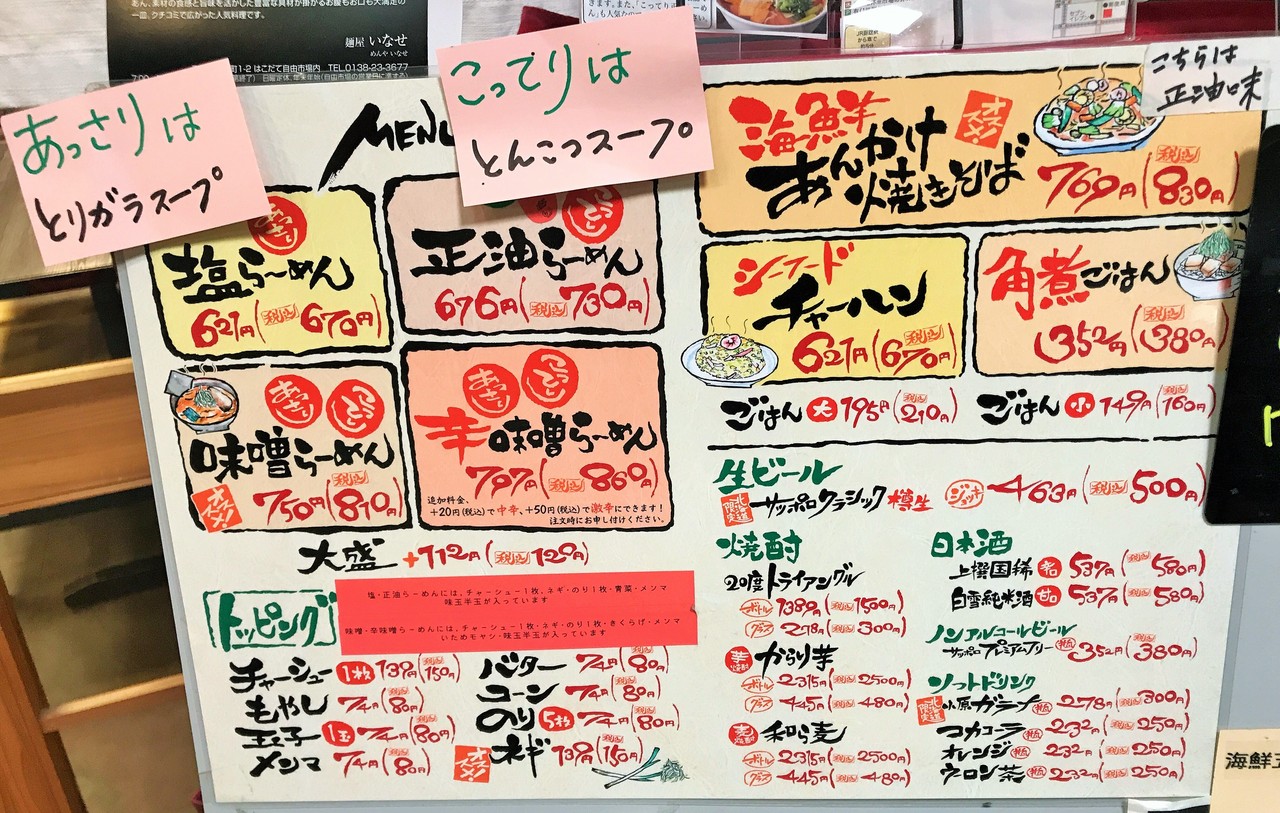 あん、素材の食感と旨味を活かした豊富な具材が掛かるお腹もお口も大満足の
一皿。クチコミで広がった人気料理です。
麺屋 いなせ
めんや いなせ
町1-2 はこだて自由市場内 TEL.0138-23-3677
あっさりは
とりガラスープ
こってりは
とんこつスープ。
こちらは
正油味
MENU
あっさり
塩らーめん
621円(税込670円)
こってり
正油らーめん
676円(税込730円)
あっさり こってり
味噌らーめん
オススメ! 750円(税込810円)
あっさり こってり
辛味噌らーめん
797円(税込860円)
追加料金、
+20円(税込)で中辛、+50円(税込)で激辛にできます!
注文時にお申し付けください。
大盛 +112円(税込120円)
塩・正油らーめんには、チャーシュー1枚、ネギ・のり1枚・青菜・メンマ
味玉半玉が入っています
味噌・辛味噌らーめんには、チャーシュー1枚・ネギ・のり1枚・きくらげ・メンマ
いためモヤシ・味玉半玉が入っています
トッピング
チャーシュー 1枚 139円(税込150円)
もやし 74円(税込80円)
玉子 1玉 74円(税込80円)
メンマ 74円(税込80円)
バター 74円(税込80円)
コーン 74円(税込80円)
のり 5枚 74円(税込80円)
オススメ! ネギ 139円(税込150円)
海鮮 オススメ!
あんかけ
焼きそば
769円(税込830円)
シーフード
チャーハン
621円(税込670円)
角煮ごはん
352円(税込380円)
ごはん 大 195円(税込210円)
ごはん 小 149円(税込160円)
生ビール
北海道限定 サッポロクラシック 樽生 ジョッキ 463円(税込500円)
焼酎
20度トライアングル
ボトル 1389円(税込1500円)
グラス 278円(税込300円)
芋焼酎 からり芋
ボトル 2315円(税込2500円)
グラス 445円(税込480円)
麦焼酎 和ら麦
ボトル 2315円(税込2500円)
グラス 445円(税込480円)
日本酒
上撰国稀 537円(税込580円)
白雪純米酒 甘口 537円(税込580円)
ノンアルコールビール
サッポロプレミアムフリー 瓶 352円(税込380円)
ソフトドリンク
北海道限定 小原ガラナ 瓶 278円(税込300円)
コカコーラ 瓶 232円(税込250円)
オレンジ 瓶 232円(税込250円)
ウーロン茶 瓶 232円(税込250円)
海鮮